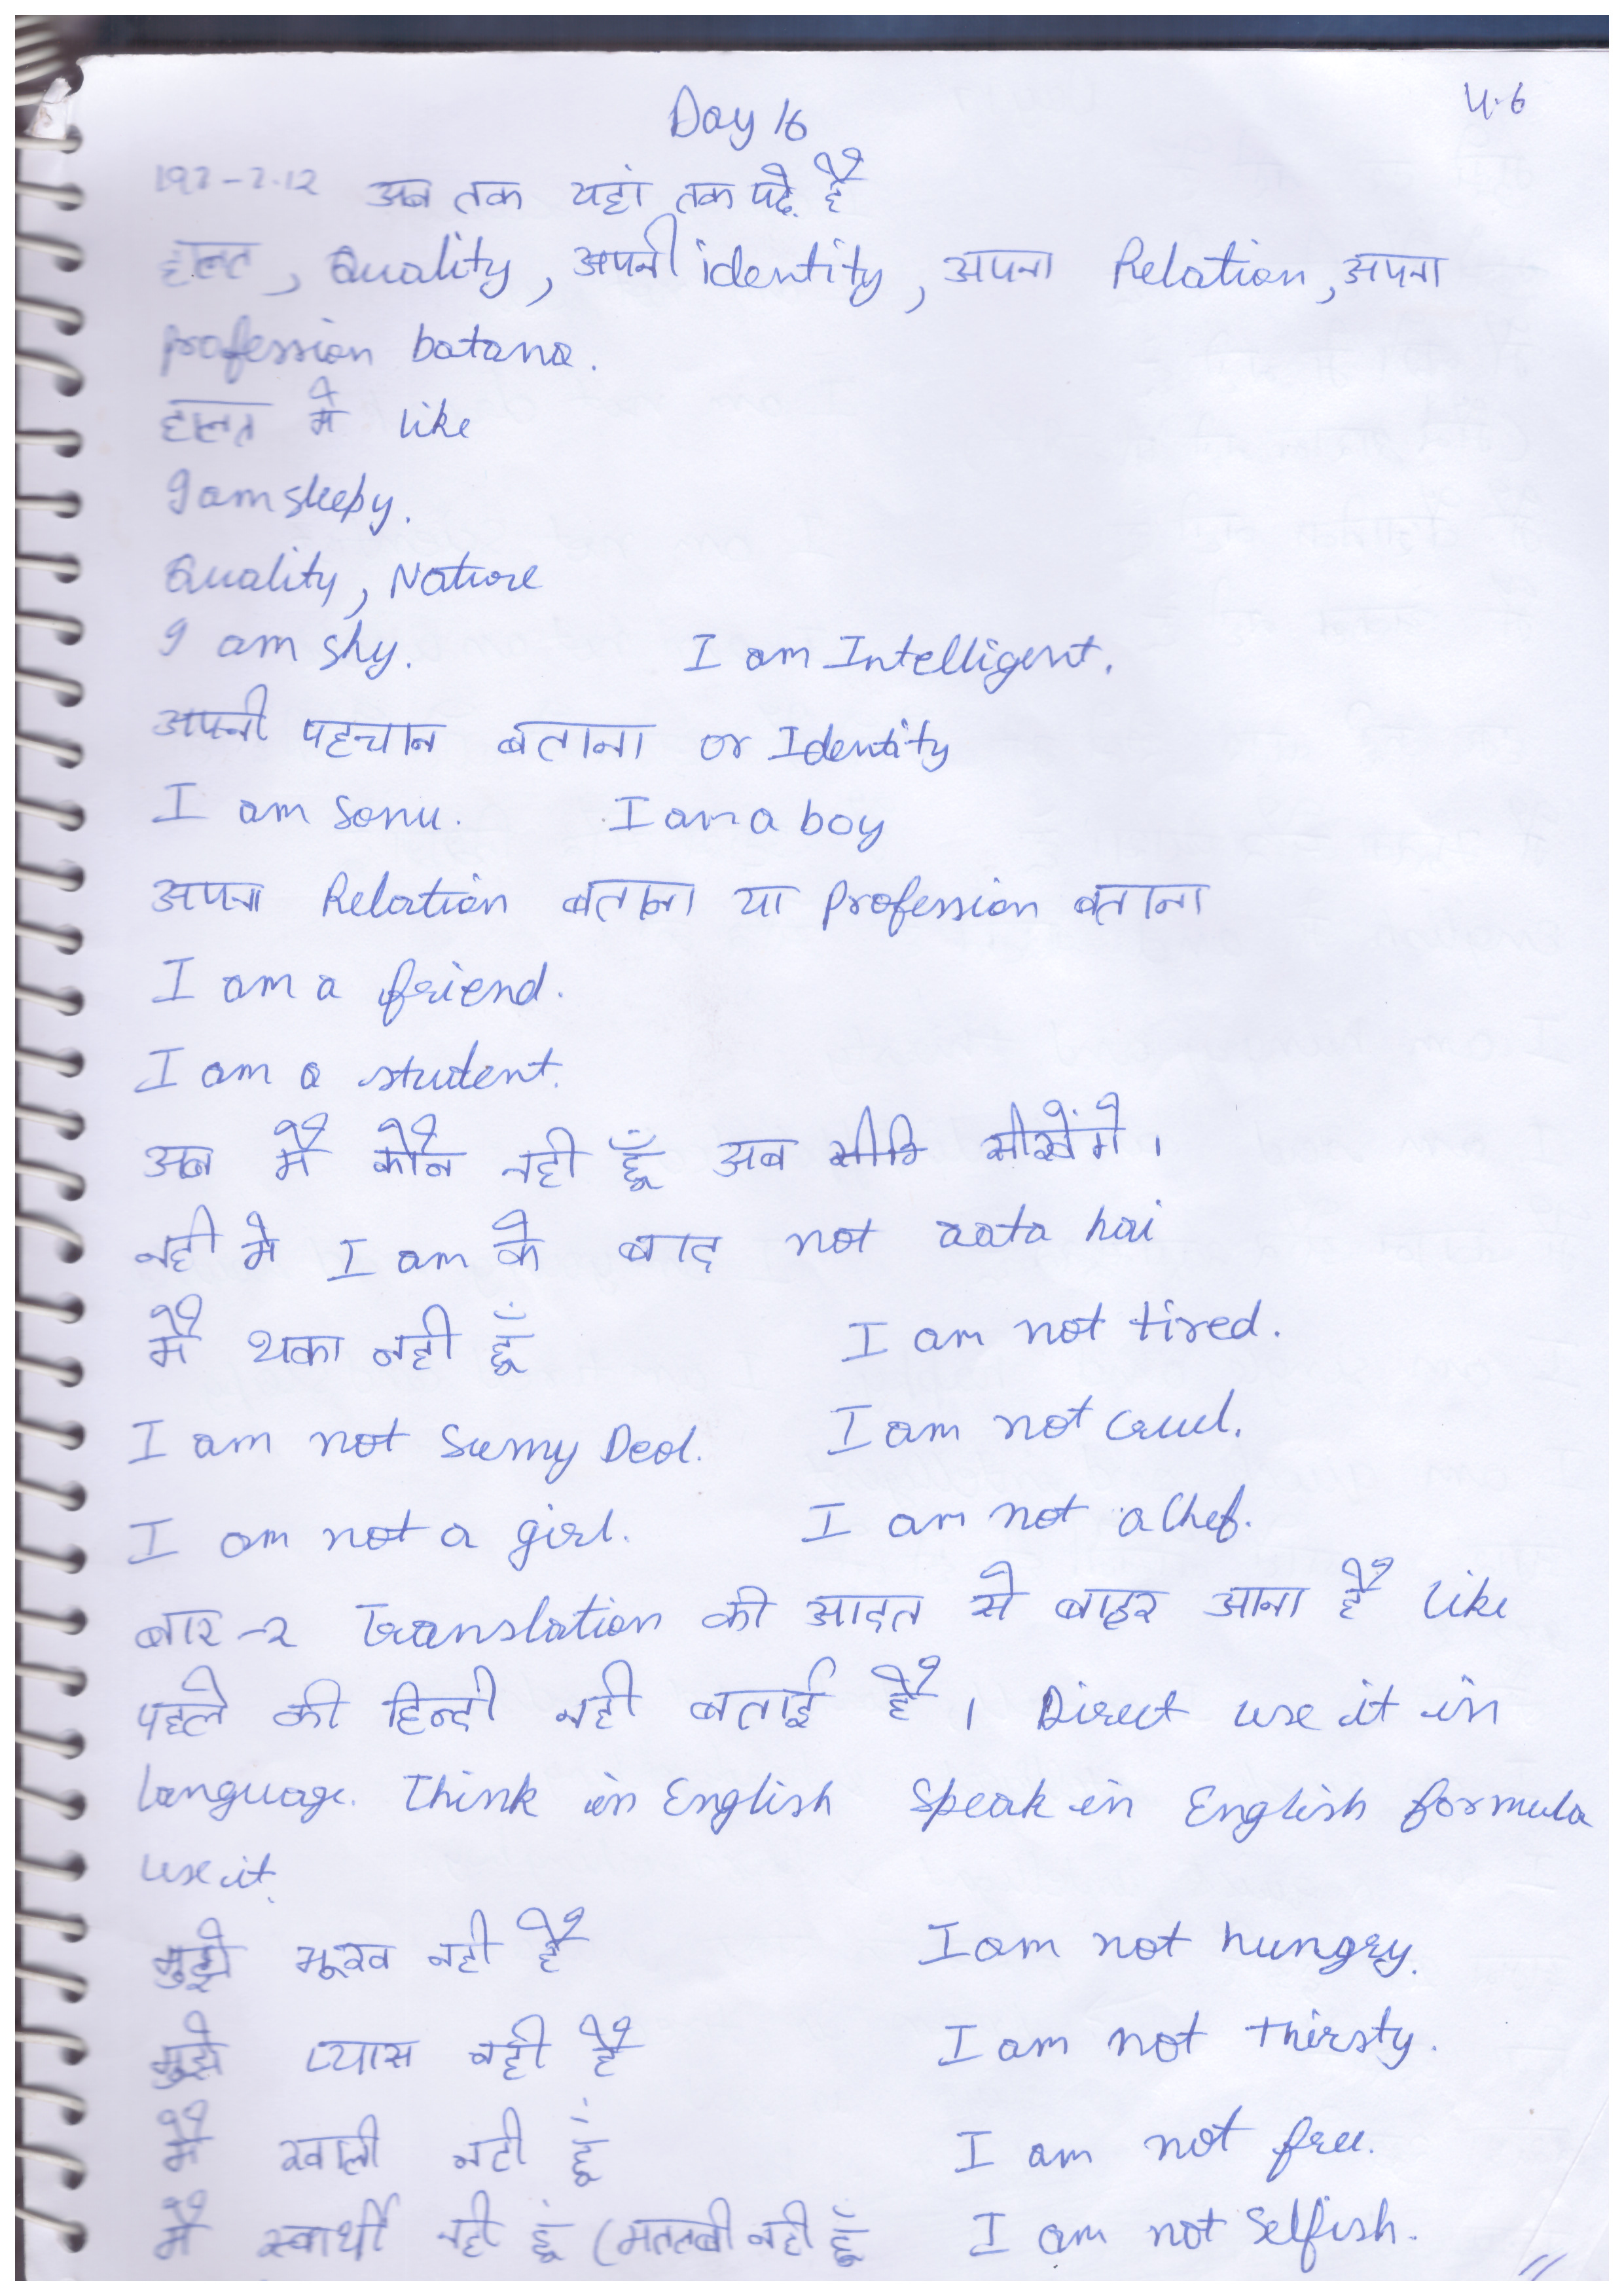 Day 16
4.6
अब तक यहां तक पढे है
हालत, Quality, अपनी identity, अपना Relation, अपना
profession batana.
हालत मे like
I am sleepy.
Quality, Nature
I am shy. I am Intelligent.
अपनी पहचान बताना or Identity
I am Sonu. I am a boy
अपना Relation बताना या profession बताना
I am a friend.
I am a student.
अब मै कौन नही हूँ अब सीखेंगे।
नही मे I am के बाद not aata hai
मै थका नही हूँ I am not tired.
I am not Sunny Deol. I am not cruel.
I am not a girl. I am not a Chef.
बार-2 Translation की आदत से बाहर आना है like
पहले की हिन्दी नही बताई है। Direct use it in
language. Think in English Speak in English formula
use it.
मुझे भूख नही है I am not hungry.
मुझे प्यास नही है I am not thirsty.
मै खाली नही हूँ I am not free.
मै स्वार्थी नही हूं (मतलबी नही हूँ I am not Selfish.